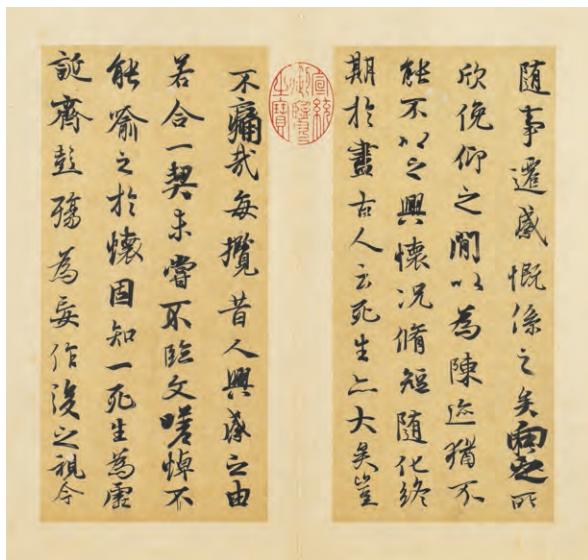 随事遷感慨係之矣向之所
欣俛仰之閒以為陳迹猶不
能不以之興懷况脩短随化終
期於盡古人云死生亦大矣豈
宣統
御覽
之寶
不痛哉每攬昔人興感之由
若合一契未嘗不臨文嗟悼不
能喻之於懷固知一死生為虛
誕齊彭殤為妄作後之視今